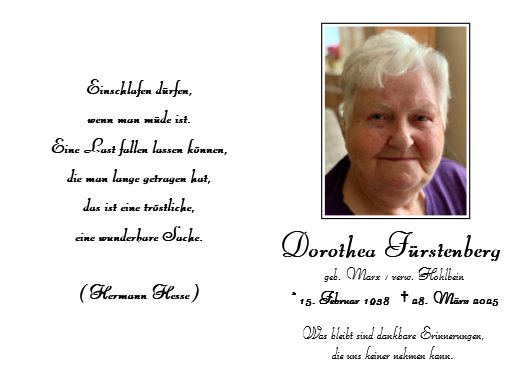 Einschlafen dürfen,
wenn man müde ist.
Eine Last fallen lassen können,
die man lange getragen hat,
das ist eine tröstliche,
eine wunderbare Sache.
(Hermann Hesse)
Dorothea Fürstenberg
geb. Marx / verw. Hohlbein
* 15. Februar 1938 † 28. März 2025
Was bleibt sind dankbare Erinnerungen,
die uns keiner nehmen kann.